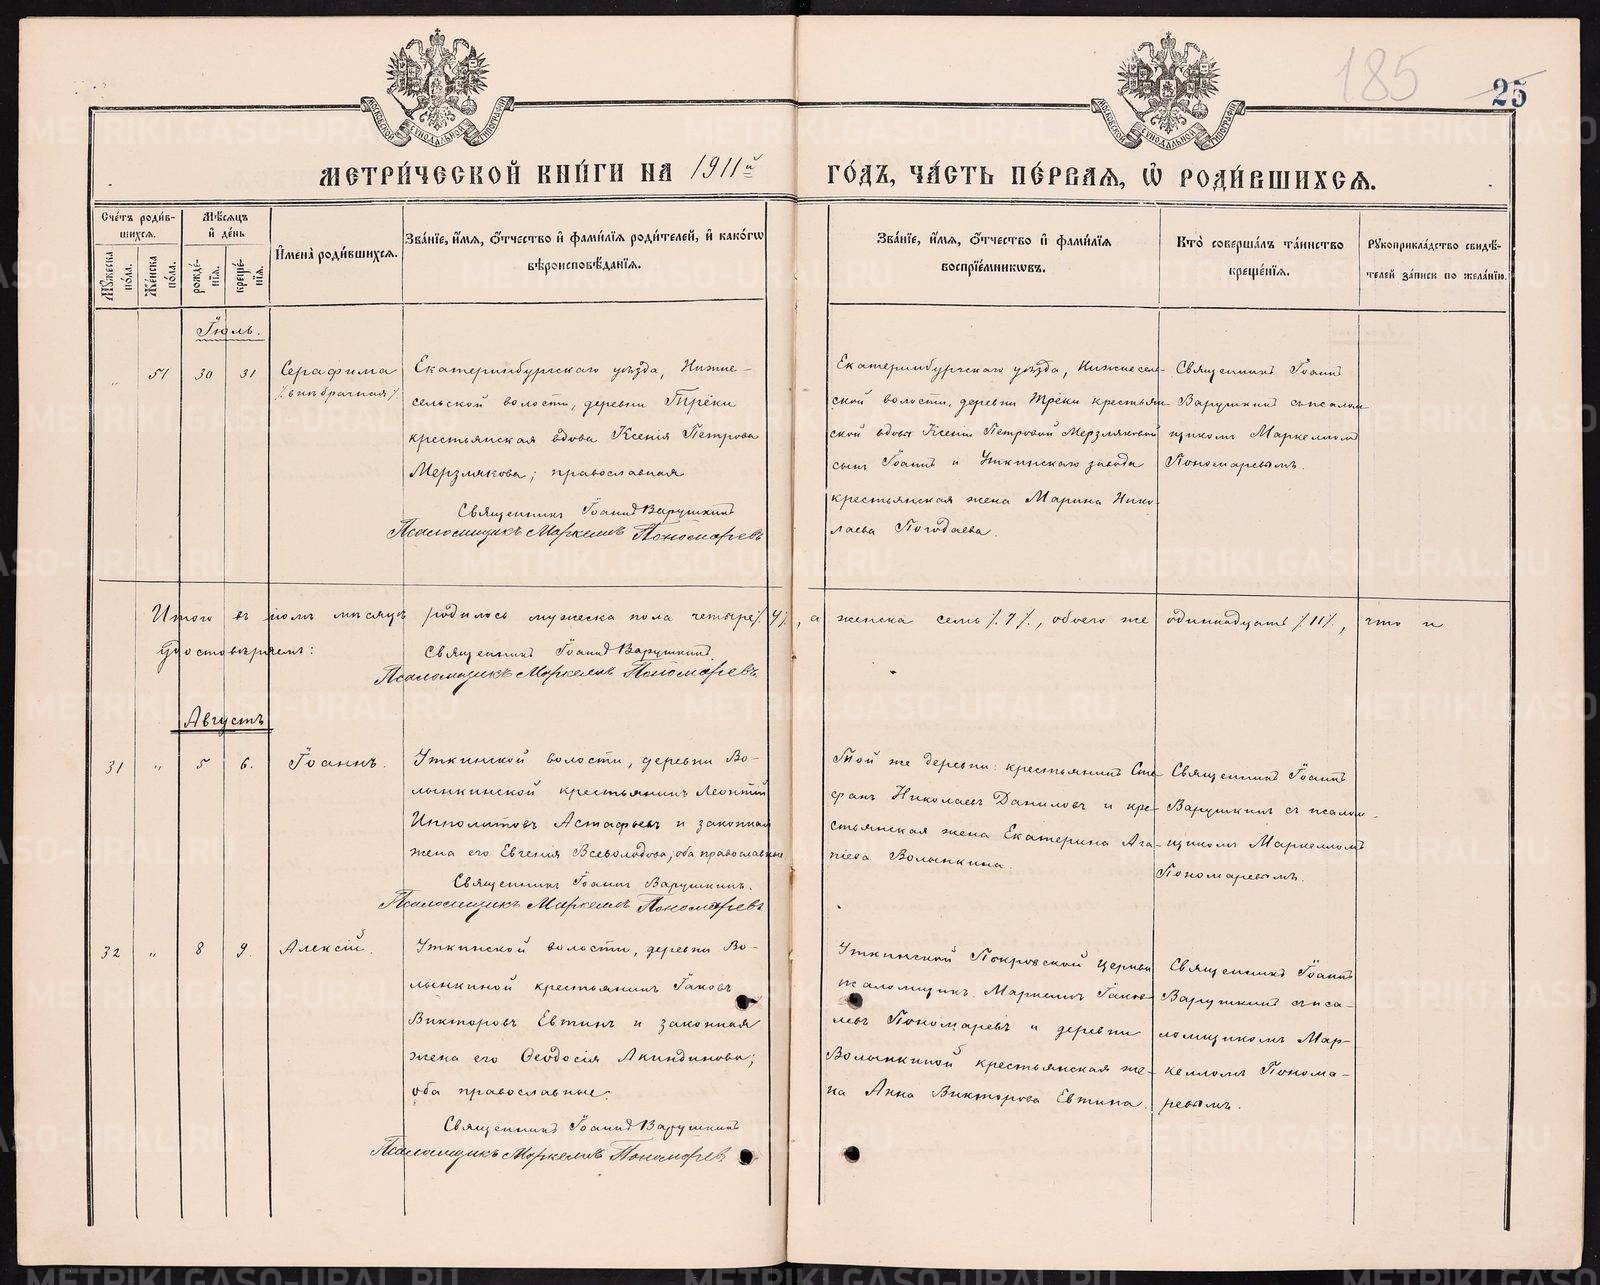 185
25
МОСКОВСКОЙ СѴНОДАЛЬНОЙ ТИПОГРАФІИ
МОСКОВСКОЙ СѴНОДАЛЬНОЙ ТИПОГРАФІИ
МЕТРИ́ЧЕСКОЙ КНИ́ГИ НА 1911й
ГО́ДЪ, ЧА́СТЬ ПЕ́РВАѦ, Ѡ҆ РОДИ́ВШИХСѦ.
Сче́тъ роди́в-
шихсѧ.
Мꙋ́жеска по́ла.
Же́нска по́ла.
Мѣ́сѧцъ
и҆ де́нь
рожде́-
нїѧ.
креще́-
нїѧ.
И҆мена̀ роди́вшихсѧ.
Зва́нїе, и҆́мѧ, ѻ҆́тчество и҆ фами́лїѧ роди́телей, и҆ како́гѡ
вѣроисповѣ́данїѧ.
Зва́нїе, и҆́мѧ, ѻ҆́тчество и҆ фами́лїѧ
воспрїе́мникѡвъ.
Кто̀ соверша́лъ та́инство
креще́нїѧ.
Рꙋкоприкла́дство свидѣ́-
телей за́писи по жела́нїю.
Іюль.
„ 51 30 31
Серафима
/:внѣбрачная:/
Екатеринбургскаго уѣзда, Нижне-
сельской волости, деревни Трёки
крестьянская вдова Ксенія Петрова
Мерзлякова; православная
Священникъ Іоаннъ Варушкинъ
Псаломщикъ Маркеллъ Пономаревъ
Екатеринбургскаго уѣзда, Нижнесель-
ской волости, деревни Трёки крестьян-
ской вдовы Ксеніи Петровой Мерзляковой
сынъ Іоаннъ и Уткинскаго завода
крестьянская жена Марина Нико-
лаева Погодаева.
Священникъ Іоаннъ
Варушкинъ съ псалом-
щикомъ Маркелломъ
Пономаревымъ.
Итого въ іюлѣ мѣсяцѣ родилось мужеска пола четыре /:4:/, а женска семь /:7:/, обоего же одиннадцать /:11:/, что и
удостовѣряемъ:
Священникъ Іоаннъ Варушкинъ
Псаломщикъ Маркеллъ Пономаревъ
Августъ
31 „ 5 6.
Іоаннъ.
Уткинской волости, деревни Во-
лынкинской крестьянинъ Леонтій
Ипполитовъ Астафьевъ и законная
жена его Евгенія Всеволодова; оба православные
Священникъ Іоаннъ Варушкинъ.
Псаломщикъ Маркеллъ Пономаревъ
Той же деревни: крестьянинъ Сте-
фанъ Николаевъ Даниловъ и кре-
стьянская жена Екатерина Ага-
піева Волынкина.
Священникъ Іоаннъ
Варушкинъ съ псалом-
щикомъ Маркелломъ
Пономаревымъ.
32 „ 8 9.
Алексій.
Уткинской волости, деревни Во-
лынкиной крестьянинъ Іаковъ
Викторовъ Евтинъ и законная
жена его Ѳеодосія Акиндинова;
оба православные.
Священникъ Іоаннъ Варушкинъ
Псаломщикъ Маркеллъ Пономаревъ
Уткинской Покровской церкви
псаломщикъ Маркеллъ Іаков-
левъ Пономаревъ и деревни
Волынкиной крестьянская же-
на Анна Викторова Евтина.
Священникъ Іоаннъ
Варушкинъ съ пса-
ломщикомъ Мар-
келломъ Понома-
ревымъ.
METRIKI.GASO-URAL.RU